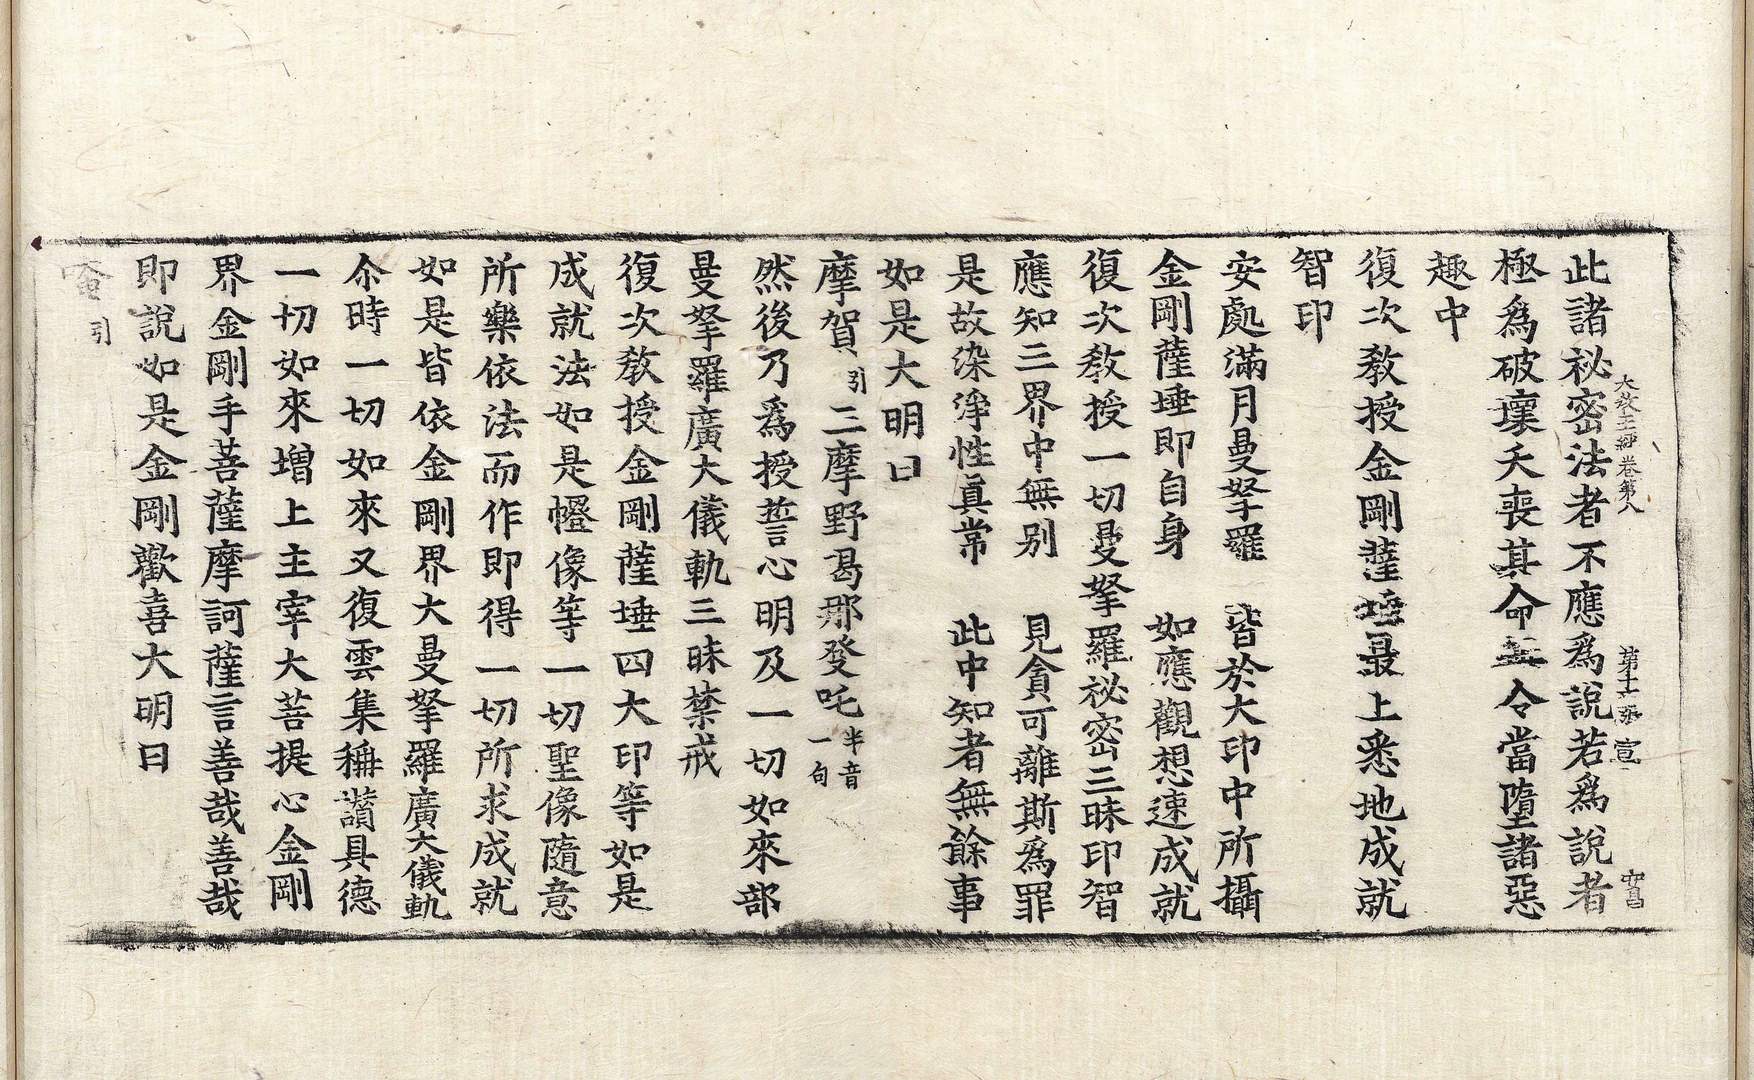 大教王經卷第八　第十六張　宣　安昌
此諸祕密法者不應爲說若爲說者
極爲破壞夭喪其命無令當墮諸惡
趣中
復次教授金剛薩埵最上悉地成就
智印
安處滿月曼拏羅　皆於大印中所攝
金剛薩埵即自身　如應觀想速成就
復次教授一切曼拏羅祕密三昧印智
應知三界中無别　見貪可離斯爲罪
是故染淨性眞常　此中知者無餘事
如是大明曰
摩賀引三摩野曷那發吒半音一句
然後乃爲授誓心明及一切如來部
曼拏羅廣大儀軌三昧禁戒
復次教授金剛薩埵四大印等如是
成就法如是㡧像等一切聖像隨意
所樂依法而作即得一切所求成就
如是皆依金剛界大曼拏羅廣大儀軌
尒時一切如來又復雲集稱讃具德
一切如來增上主宰大菩提心金剛
界金剛手菩薩摩訶薩言善哉善哉
即說如是金剛歡喜大明曰
唵引